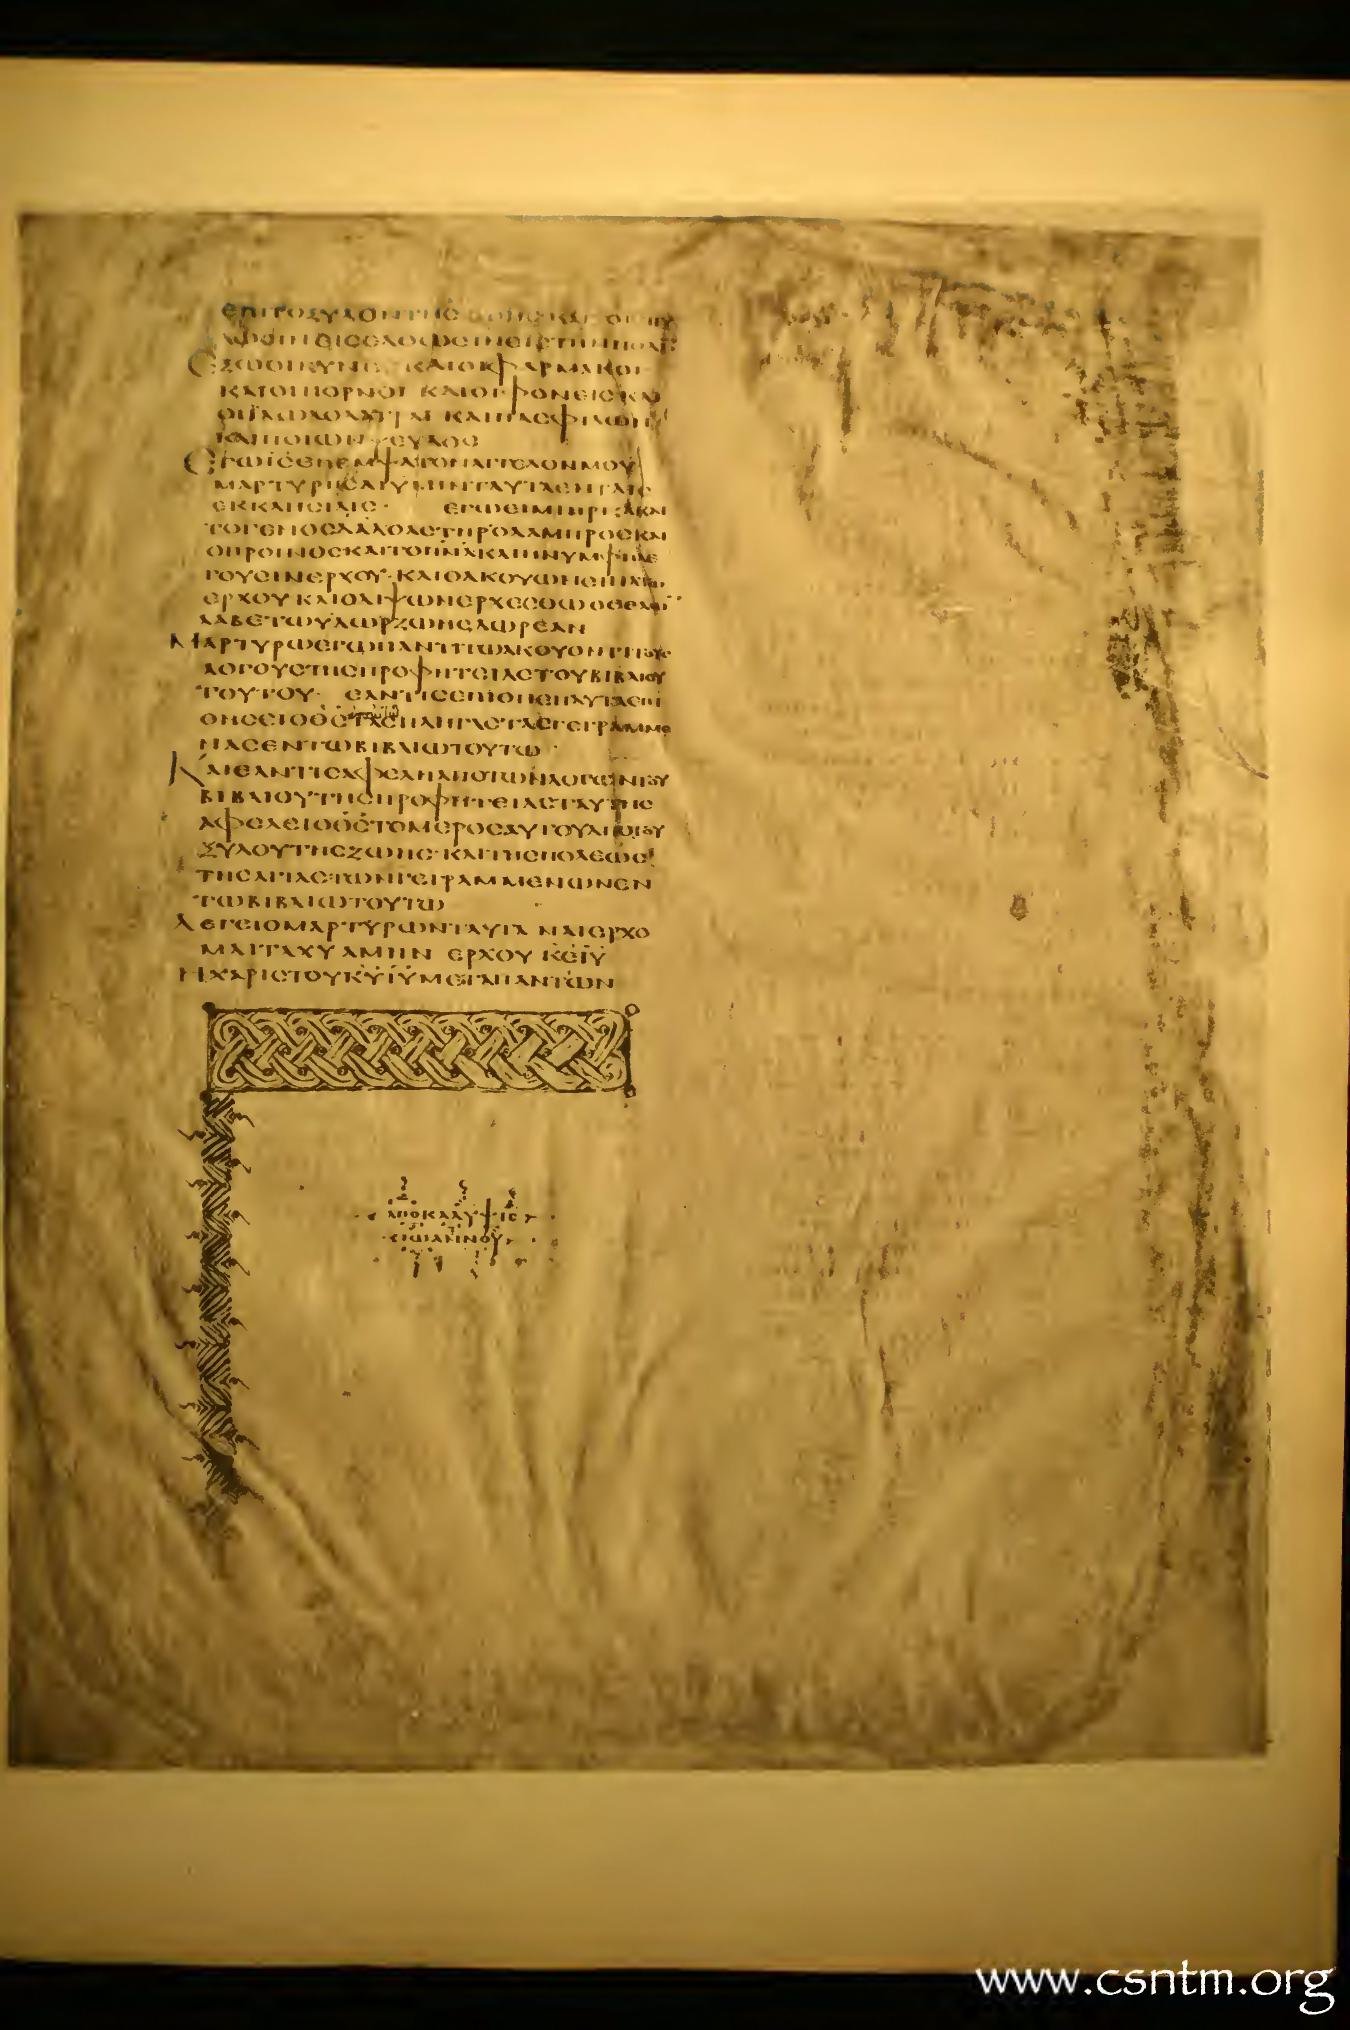 ΕΠΙΤΟΞΥΛΟΝΤΗС ΖΩΗС ΚΑΙ
ΕΞΩΟΙΚΥΝΕС ΚΑΙΟΙΦΑΡΜΑΚΟΙ
ΚΑΙΟΙΠΟΡΝΟΙ ΚΑΙΟΙΦΟΝΕΙС ΚΑΙ
ΟΙΕΙΔΩΛΟΛΑΤΡΑΙ ΚΑΙΠΑС ΦΙΛΩΝ
ΚΑΙΠΟΙΩΝ ΨΕΥΔΟС
ΕΓΩΙС ΕΠΕΜΨΑΤΟΝΑΓΓΕΛΟΝΜΟΥ
ΜΑΡΤΥΡΗСΑΙΥΜΙΝΤΑΥΤΑΕΝΤΑΙС
ΕΚΚΛΗСΙΑΙС· ΕΓΩΕΙΜΙΗΡΙΖΑΚΑΙ
ΤΟΓΕΝΟСΔΑΔΟΑСΤΗΡΟΛΑΜΠΡΟСΚΑΙ
ΟΠΡΟΙΝΟСΚΑΙΤΟΠΝΑΚΑΙΗΝΥΜΦΗΛΕ
ΓΟΥСΙΝΕΡΧΟΥ·ΚΑΙΟΑΚΟΥΩΝΕΙΠΑΤΩ
ΕΡΧΟΥ ΚΑΙΟΔΙΨΩΝΕΡΧΕСΘΩΟΘΕΛΩ
ΛΑΒΕΤΩΥΔΩΡΖΩΗСΔΩΡΕΑΝ
ΜΑΡΤΥΡΩΕΓΩΠΑΝΤΙΤΩΑΚΟΥΟΝΤΙΤΟΥС
ΛΟΓΟΥСΤΗСΠΡΟΦΗΤΕΙΑСΤΟΥΒΙΒΛΙΟΥ
ΤΟΥΤΟΥ· ΕΑΝΤΙСΕΠΙΘΗΕΠΑΥΤΑΕΠΙ
ΘΗСΕΙΟΘС ΤΑСΠΛΗΓΑСΤΑСΓΕΓΡΑΜΜΕ
ΝΑСΕΝΤΩΒΙΒΛΙΩΤΟΥΤΩ·
ΚΑΙΕΑΝΤΙСΑΦΕΛΗΑΠΟΤΩΝΛΟΓΩΝΤΟΥ
ΒΙΒΛΙΟΥΤΗСΠΡΟΦΗΤΕΙΑСΤΑΥΤΗС
ΑΦΕΛΕΙΟΘСΤΟΜΕΡΟСΑΥΤΟΥΑΠΟΤΟΥ
ΞΥΛΟΥΤΗСΖΩΗС·ΚΑΙΤΗСΠΟΛΕΩС
ΤΗСΑΓΙΑС·ΤΩΝΓΕΓΡΑΜΜΕΝΩΝΕΝ
ΤΩΒΙΒΛΙΩΤΟΥΤΩ
ΛΕΓΕΙΟΜΑΡΤΥΡΩΝΤΑΥΤΑ ΝΑΙΕΡΧΟ
ΜΑΙΤΑΧΥ ΑΜΗΝ ΕΡΧΟΥ ΚΕΙΥ
ΗΧΑΡΙСΤΟΥΚΥΙΥΜΕΤΑΠΑΝΤΩΝ
ΑΠΟΚΑΛΥΨΙС
ΙΩΑΝΝΟΥ
www.csntm.org